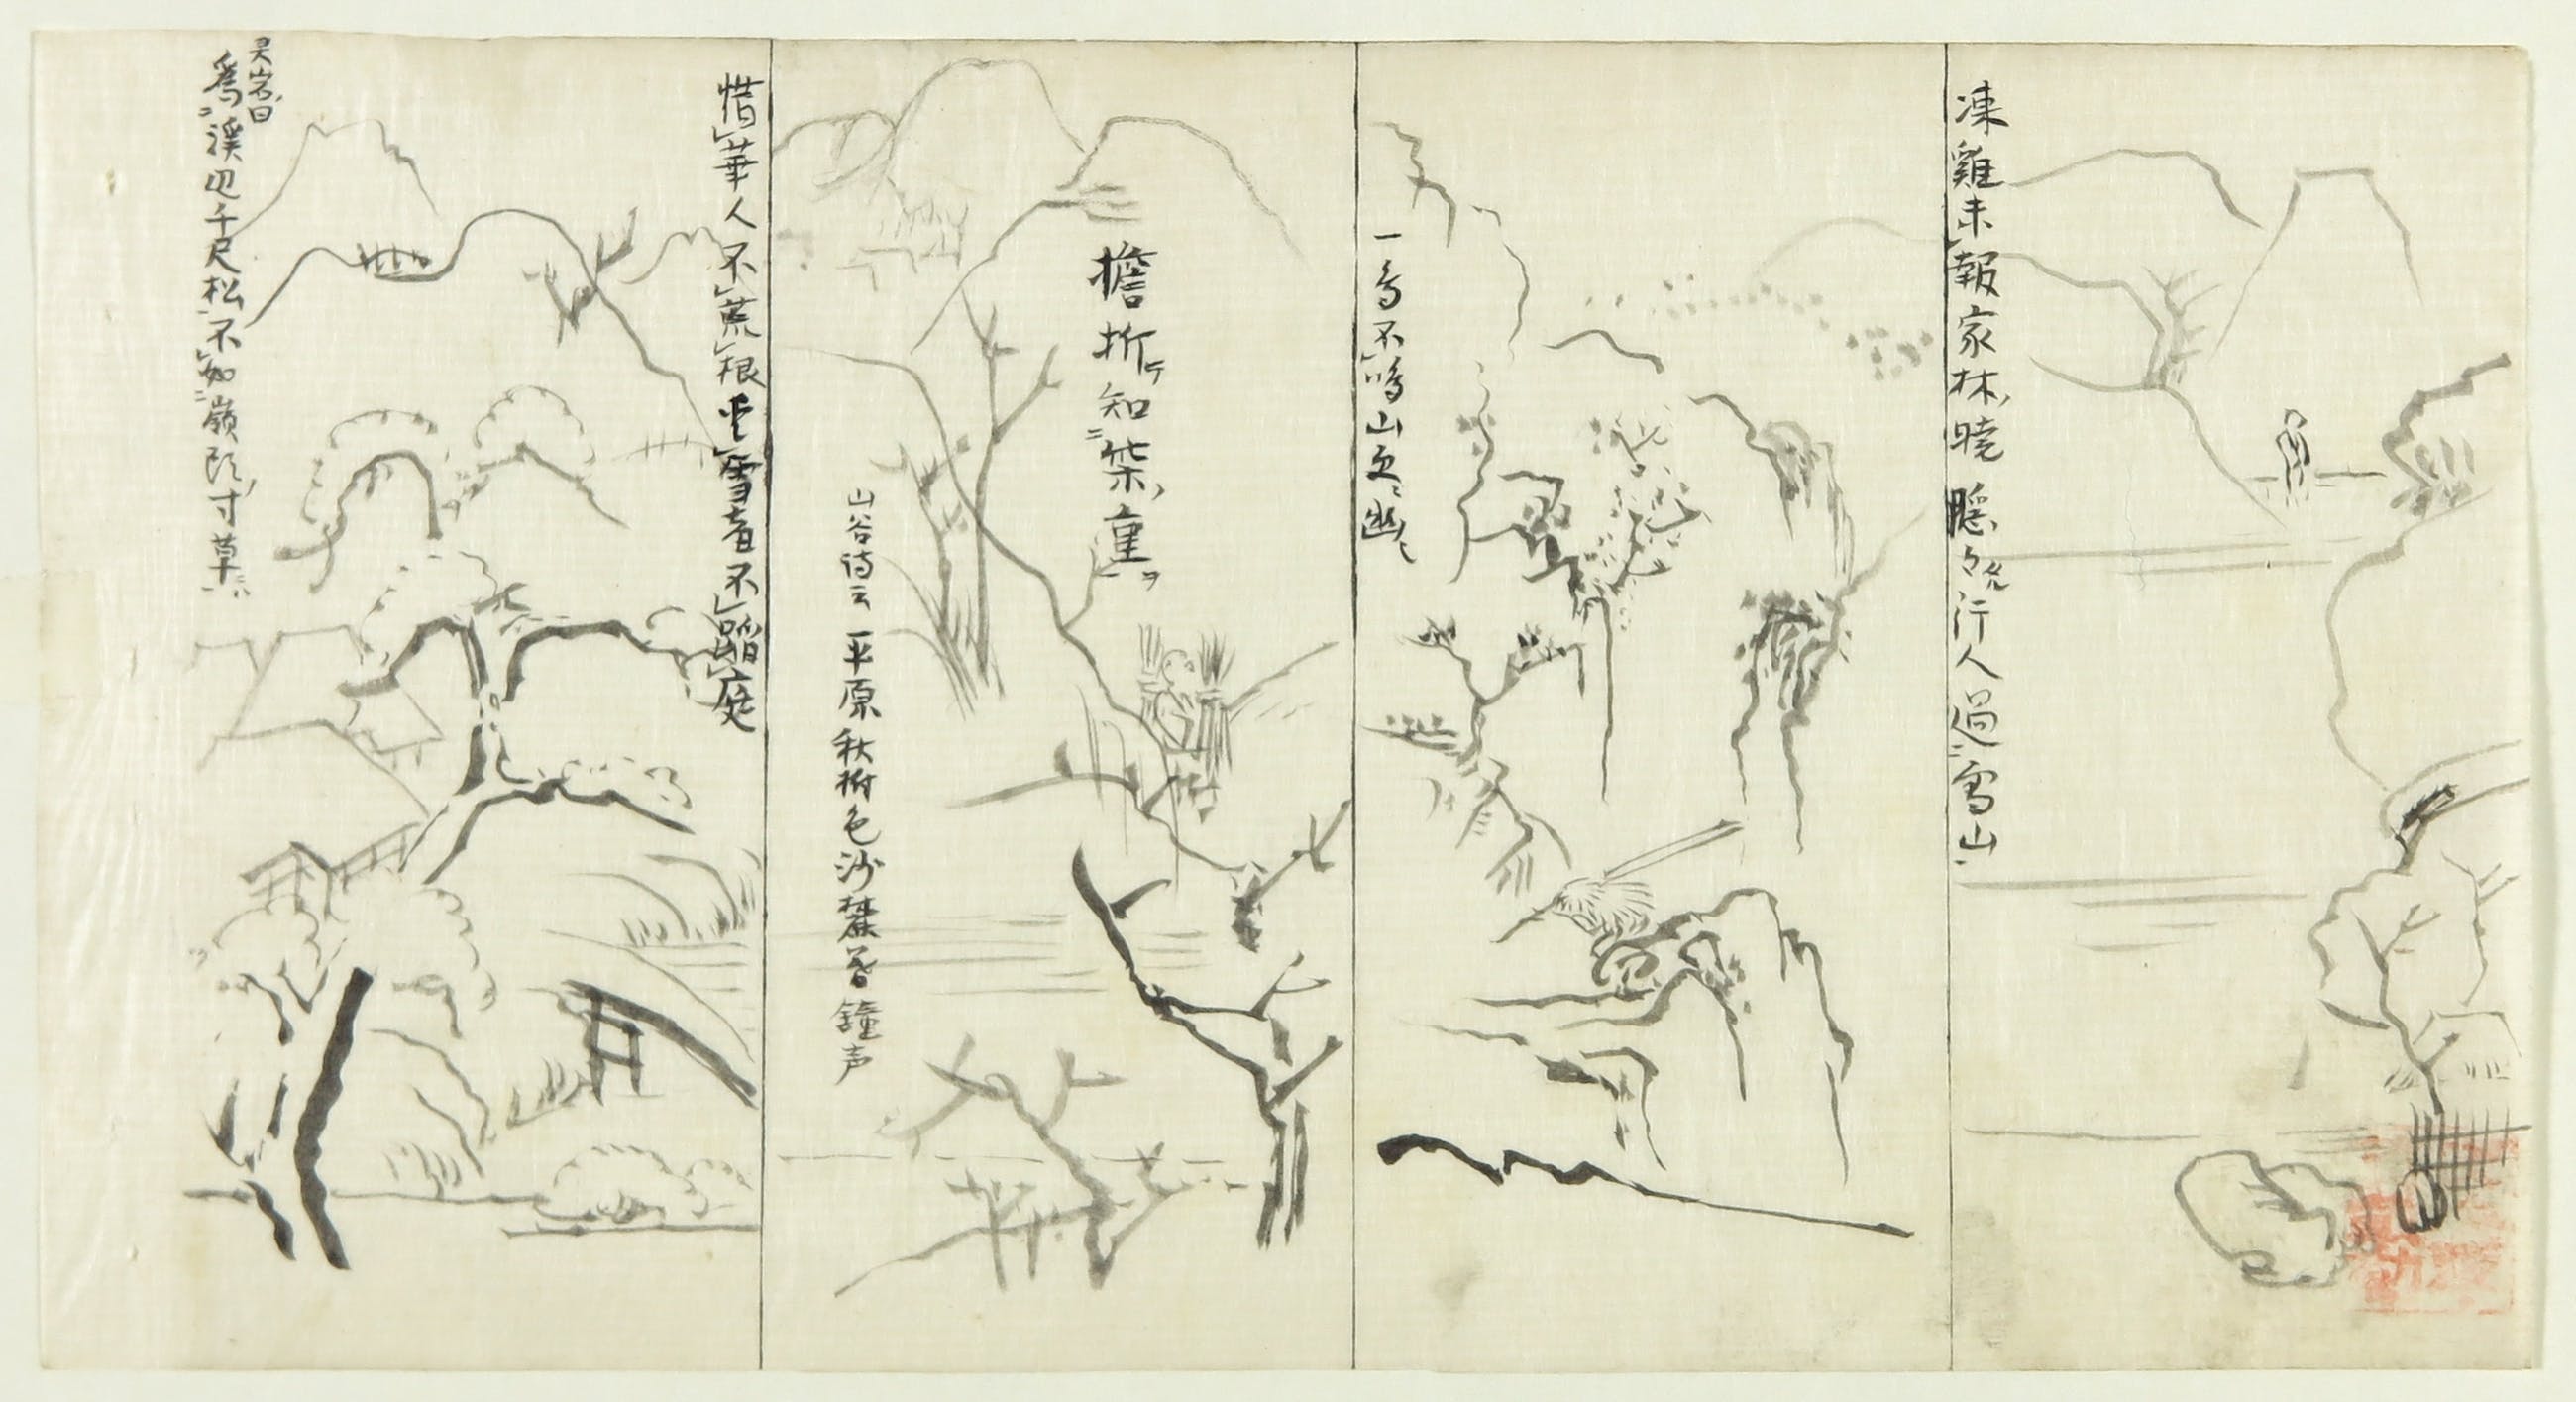 凍雞未報家林暁 隠々行人過雪山
一鳥不鳴山更幽
擔折知柴重
山谷诗云 平原秋樹色沙麓昏鐘声
惜華人不荒根 雪者不蹈庭
灵岩曰
為溪辺千尺松不如嶺頭寸草